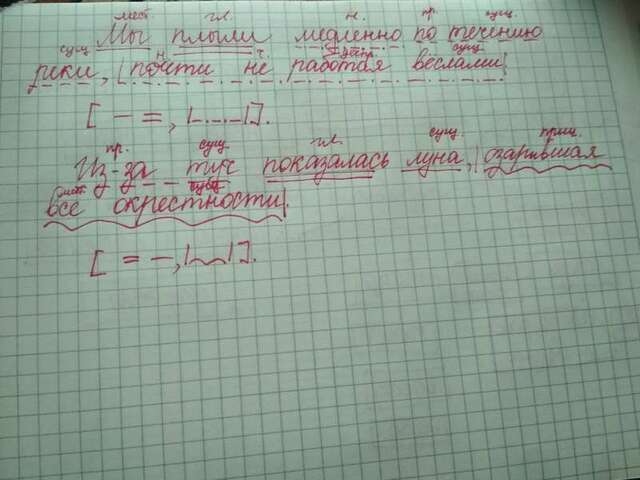 мест. гл. н. пр. сущ.
Мы плыли медленно по течению
сущ. н. ч. деепр. сущ.
реки, | почти не работая веслами|.
[ — =, |_._._|].
пр. сущ. гл. сущ. прич.
Из-за туч показалась луна, | озарившая
мест. сущ.
все окрестности|.
[ = —, |﹏|].